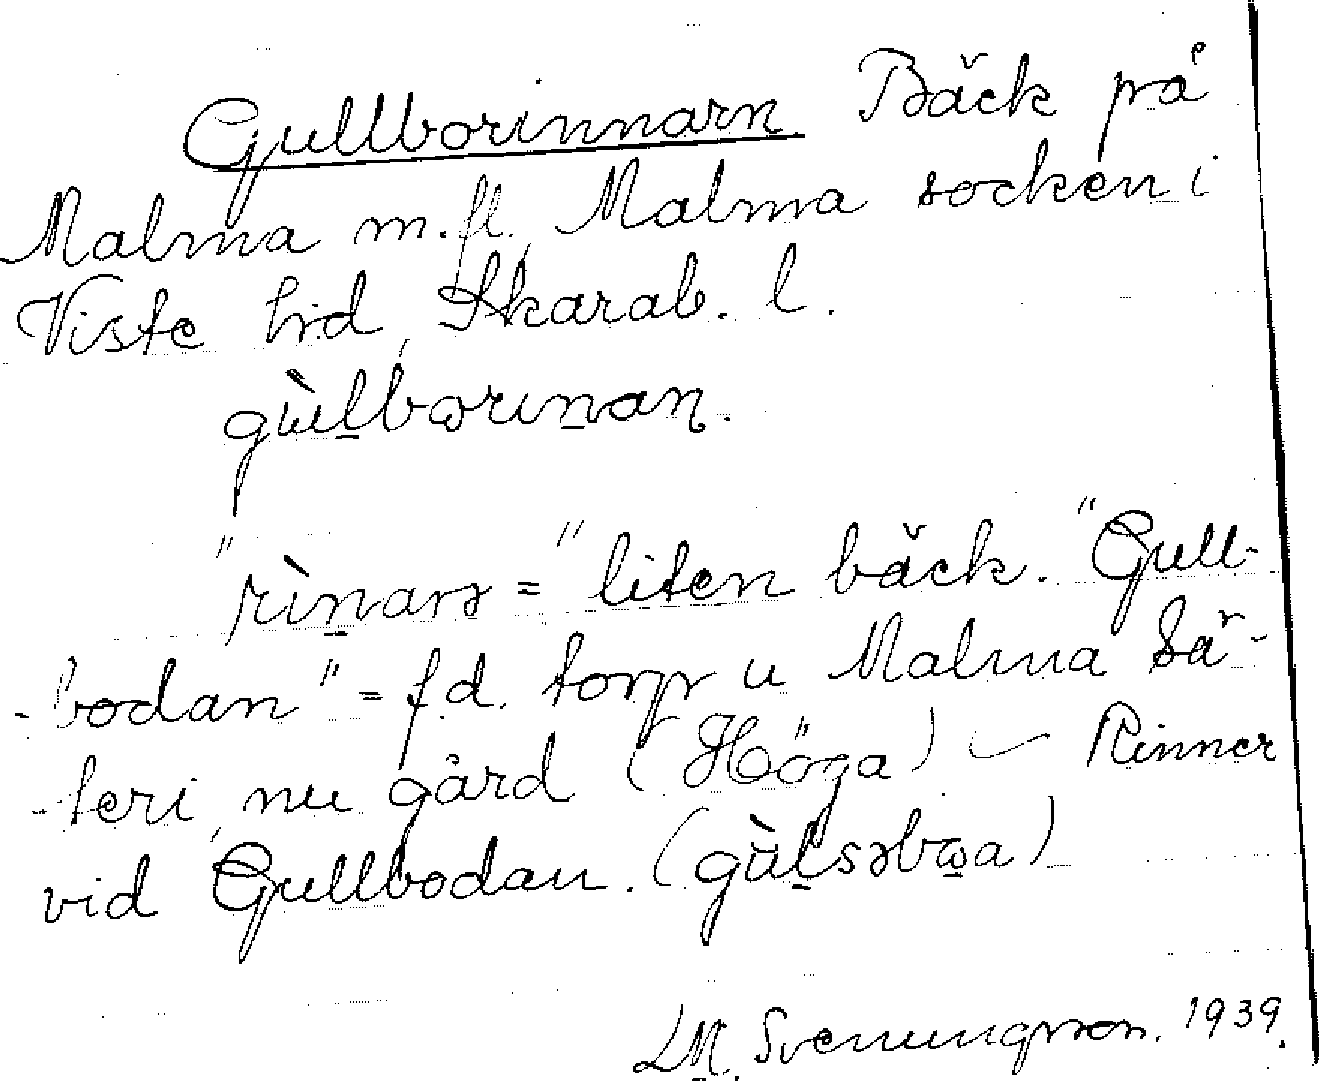 Gullborinnarn Bäck på
Malma m.fl., Malma socken i
Viste hd, Skarab. l.
gùlbɷrinan.
"rìnarə = "liten bäck. "Gull-
-bodan" = f.d. torp u Malma Sä-
-teri, nu gård (Höga) Rinner
vid Gullbodan. (gùlsəbɷa)
LM. Svenungsson. 1939.